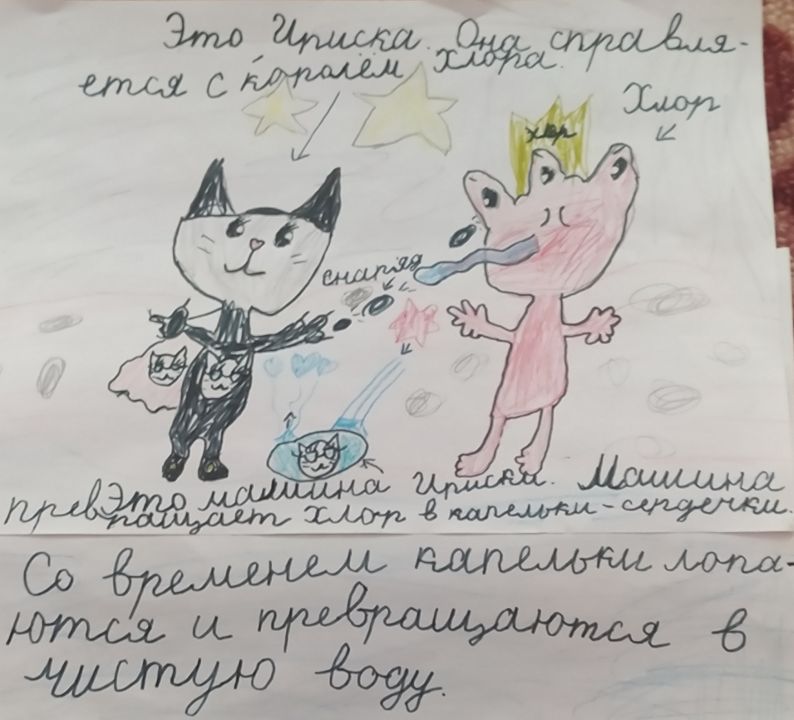 Это Ириска. Она справля-
ется с королём хлора.
Хлор
хлор
снаряд
Это машина Ириски. Машина
превращает хлор в капельки-сердечки.
Со временем капельки лопа-
ются и превращаются в
чистую воду.